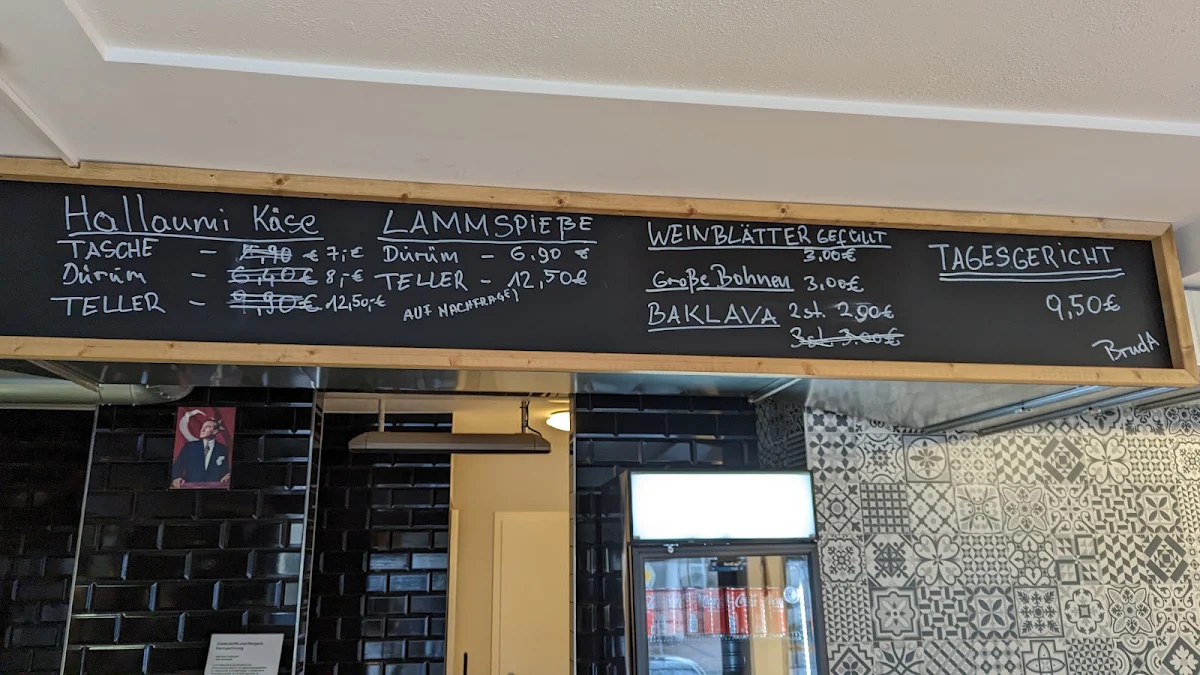 Hallaumi Käse
TASCHE – € 7,-€
Dürüm – 6,40€ 8,-€
TELLER – 9,90€ 12,50,-€
LAMMSPIEßE
Dürüm – 6.90 €
TELLER – 12,50€
AUF NACHFRAGE,
WEINBLÄTTER GEFÜLLT
3,00€
Große Bohnen 3,00€
BAKLAVA 2st. 2,90€
3st. 3.00€
TAGESGERICHT
9,50€
BrudA
Coca-Cola